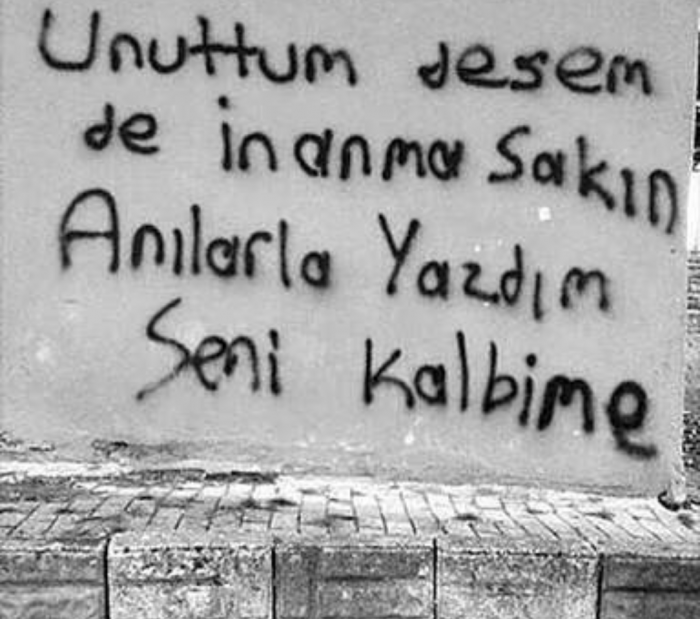 Unuttum desem
de inanma Sakın
Anılarla Yazdım
Seni Kalbime